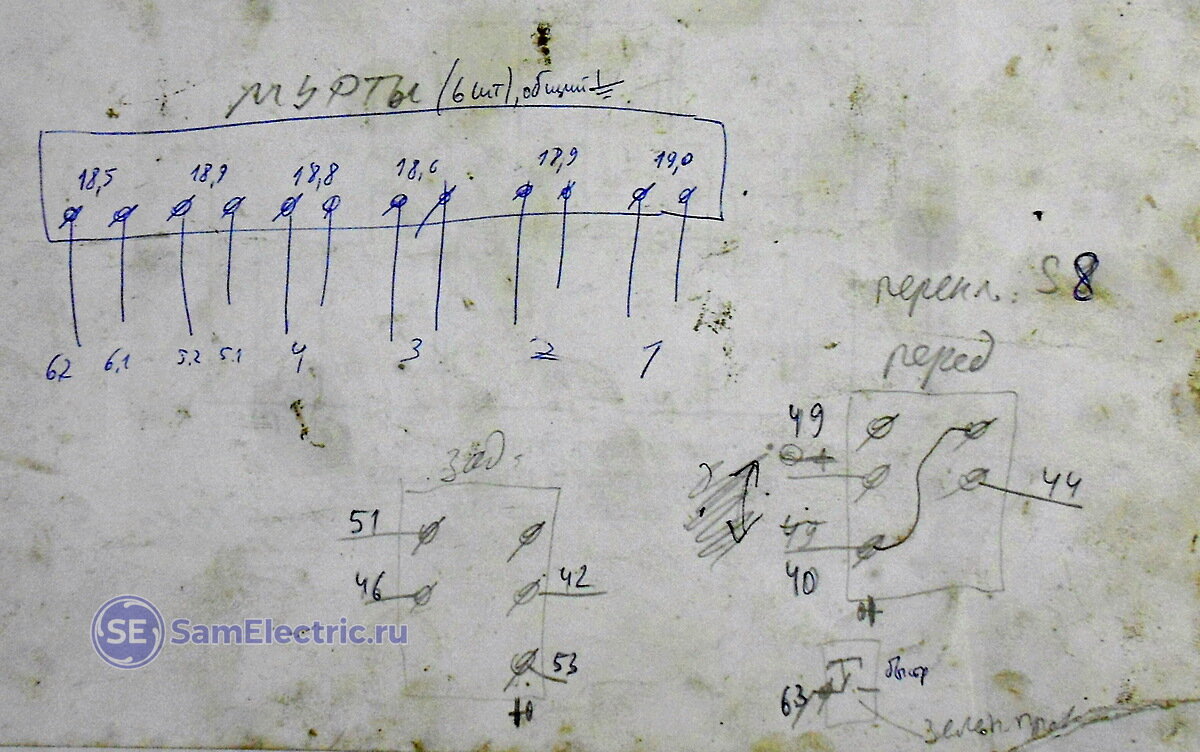 муфты (6 шт), общий
18,5 18,9 18,8 18,6 18,9 19,0
6.2 6.1 5.2 5.1 4 3 2 1
перекл. S8
перед
49
44
40
зад.
51
46
42
53
63
SE SamElectric.ru